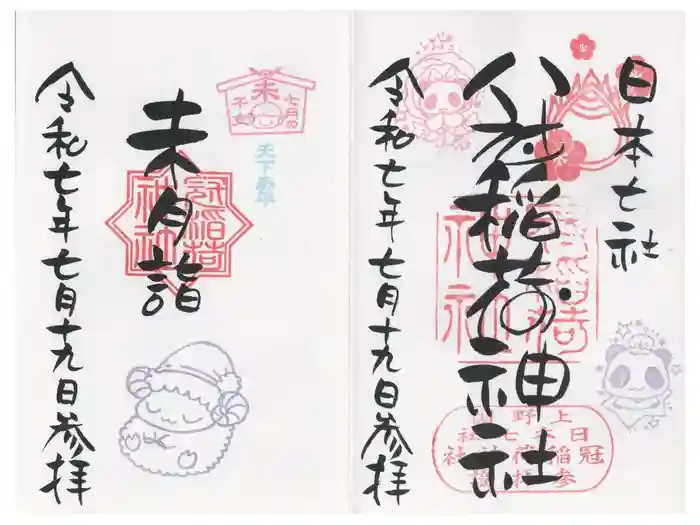 日本七社
冠稲荷神社
令和七年七月十九日参拝
上野国
日本七社
冠稲荷神社
未月詣
令和七年七月十九日参拝
七月の
未
干支
天下泰平
冠稲荷
神社